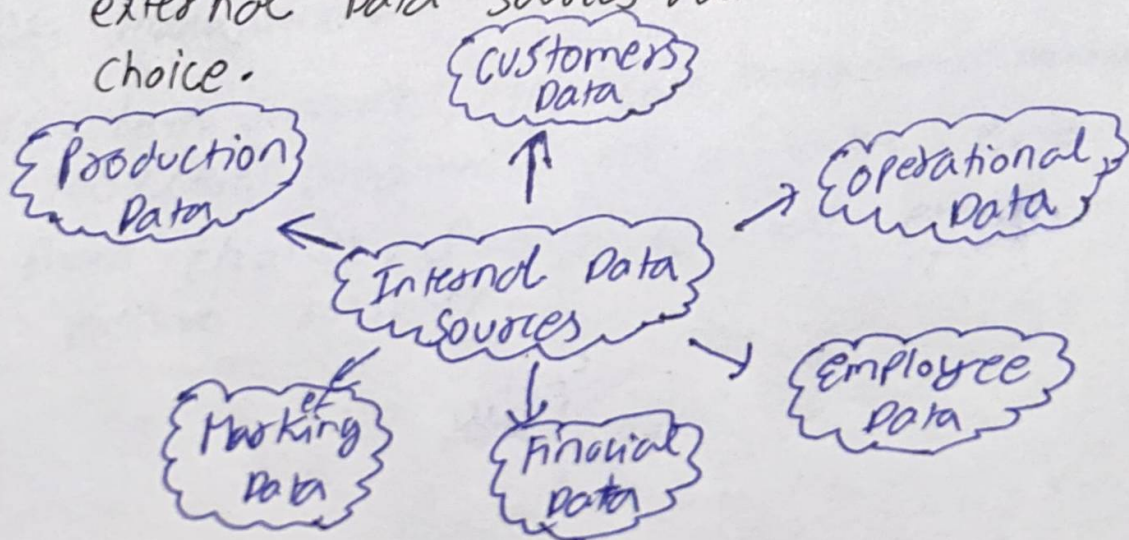 external Data sources
choice.
Customers
Data
Production
Data
Operational
Data
Internal Data
Sources
Employee
Data
Marketing
Data
Finacial
Data